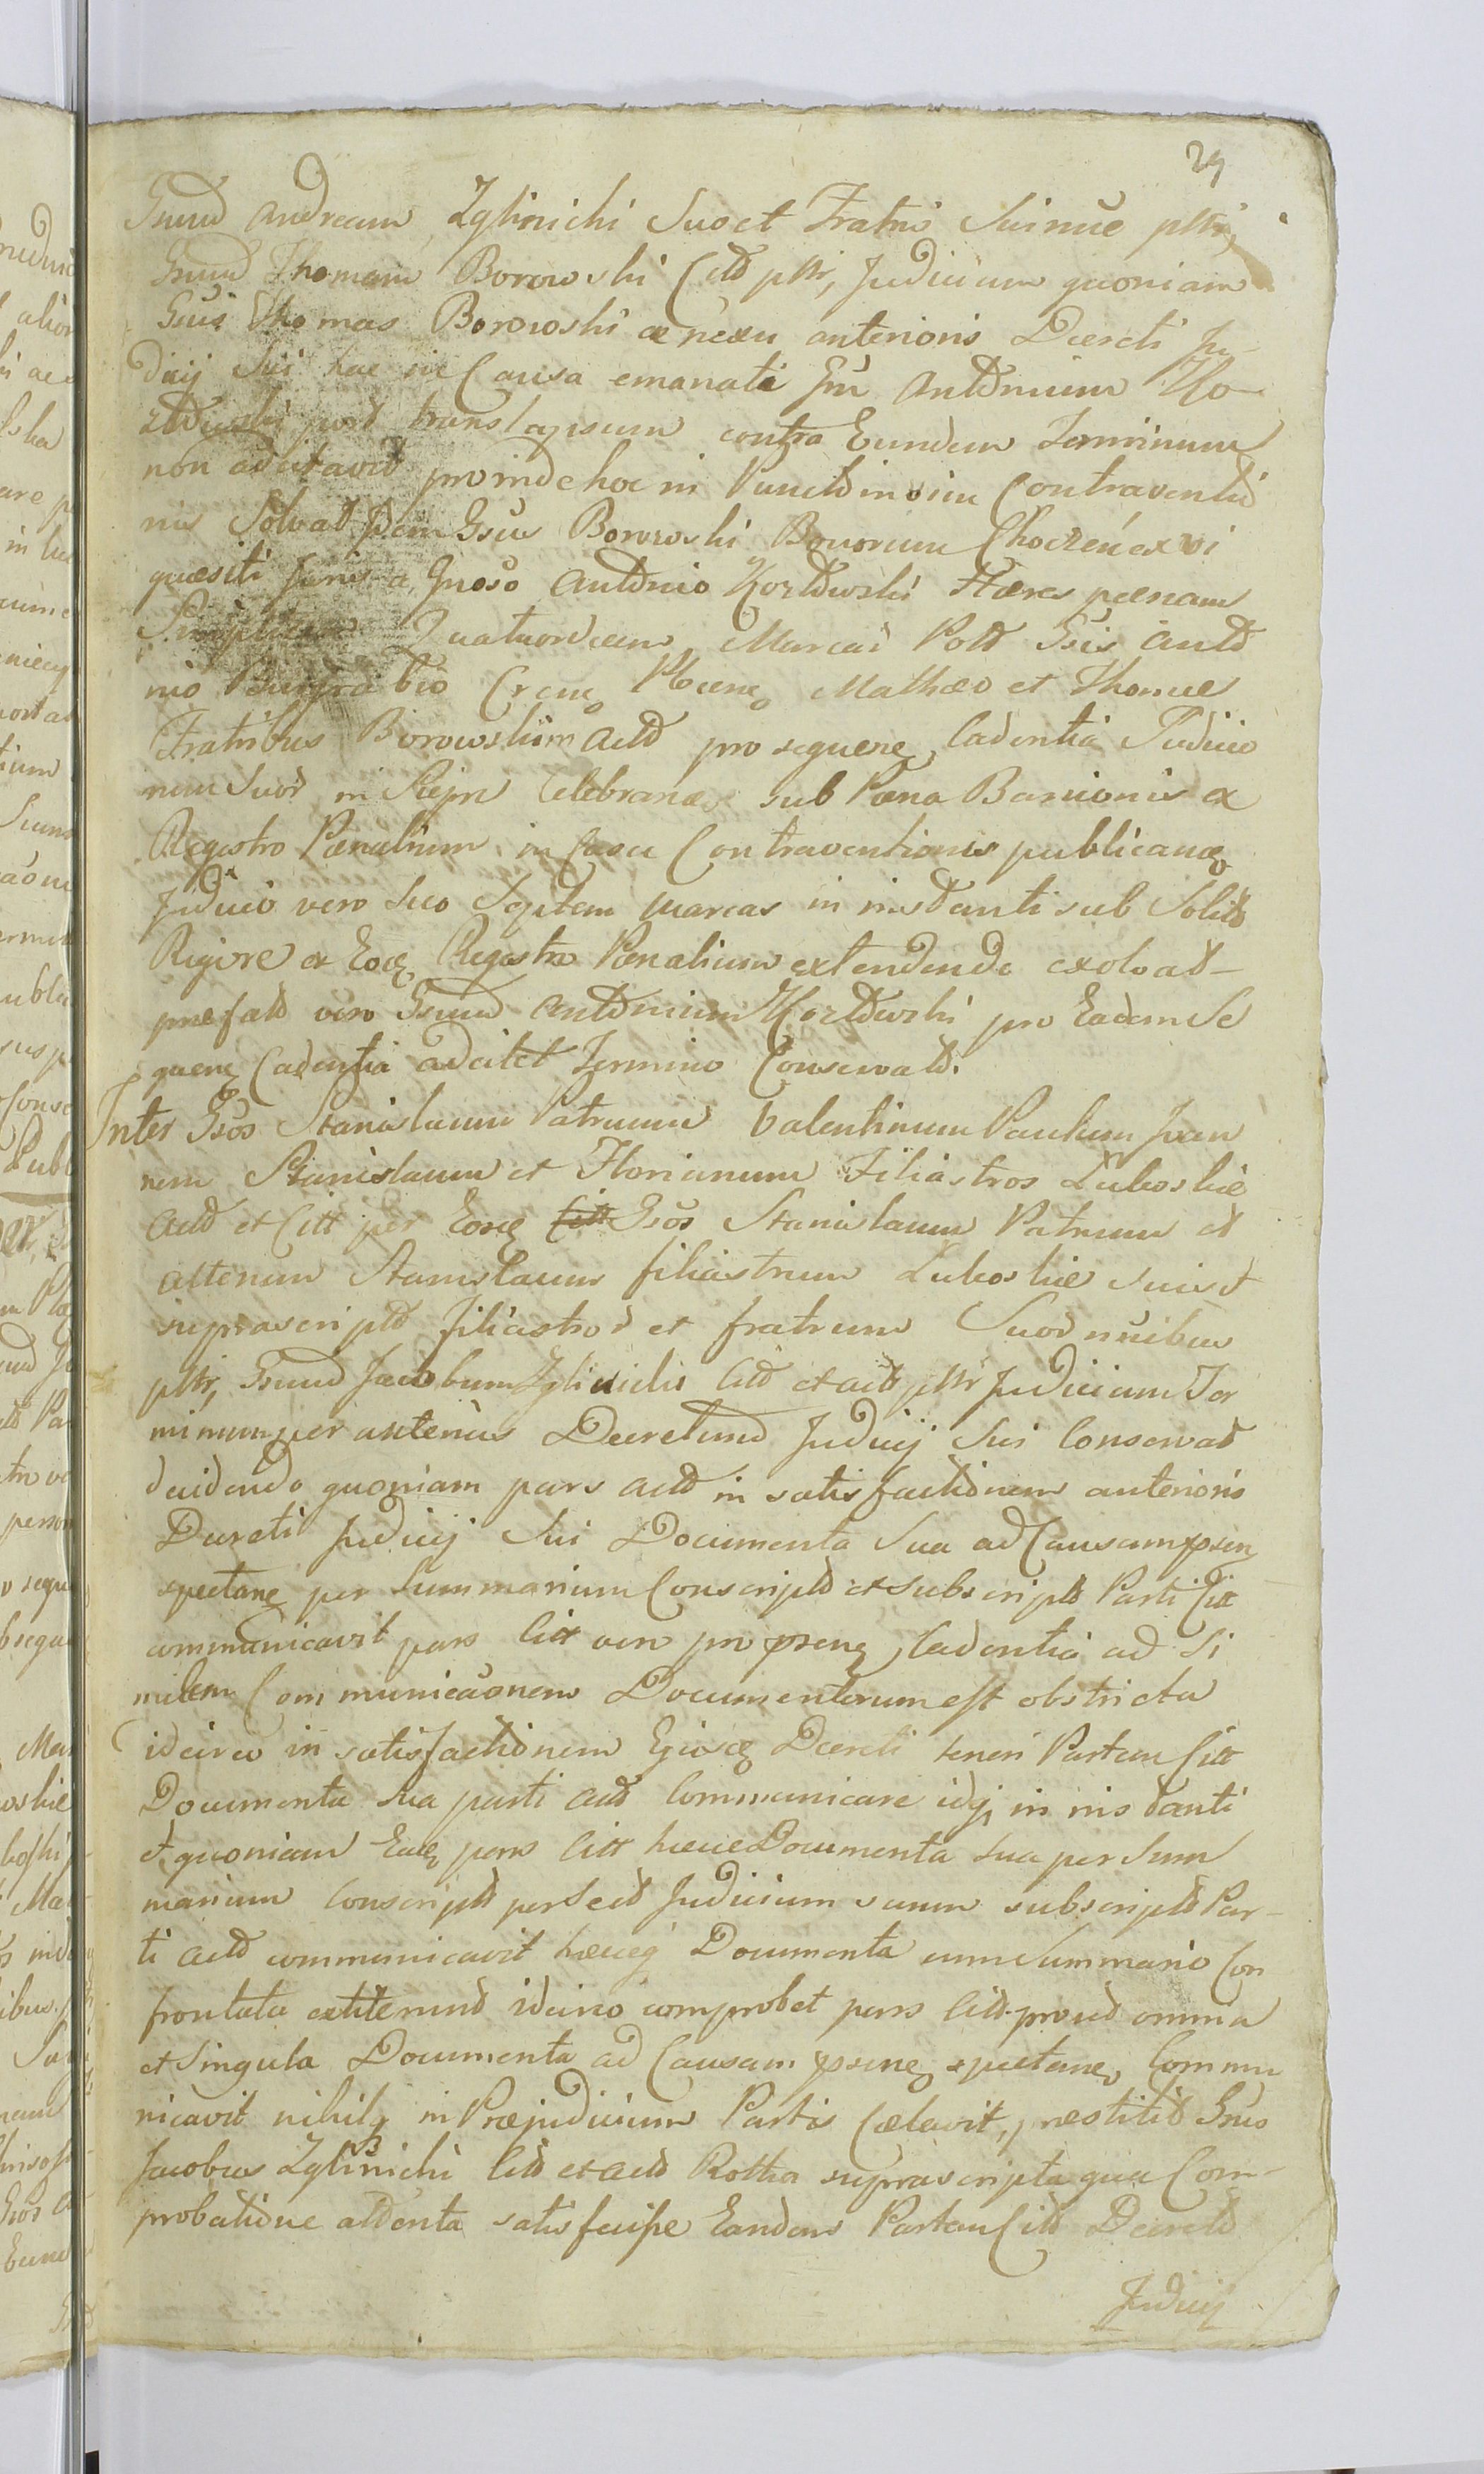 29
Gnum Andream Zglinicki Suo et Fratris Sui nňe pttr,
Gnum Thomam Borowski Citt pttr, Judicium quoniam
Gnus Thomas Borowski ex nexu anterioris Decreti Ju-
dicij Sui hac in Causa emanati Gnm Antonium Ko-
post translapsum contra Eundem Terminum
non adcitavit proinde hoc in Puncto in vim Contraventio
nis Solvat Idem Gnus Borowski Bonorum Choczeń ex vi
quaesiti Juris a Gnoso Antonio Kozłowski Haeres paenam
Simplicem Quatuordecem Marcas Poll Gsis Anto
nio Burgrabio Crenen Mathaeo et Thomae
Fratribus Borowskim Actt pro sequenę Cadentia Judicio
rum Suor in Sierpc Celebranda sub Paena Banionis ex
Regestro Paenalium in Casu Contraventionis publicandę
Judicio vero Suo Septem marcas in instanti sub Solito
Rigore ex Eodę Regestro Paenalium extendendo exolvat-
praefatt vero Gnum Antonium Kozłowski pro Eadem Se
quenę Cadentia adcitet Termino Conservatt.
Inter Gsos Stanislaum Patruum Valentinum Paulum Joan
nem Stanislaum et Florianum Filiastros Lukoskie
Actt et Citt per Eosdę Citt Gsos Stanislaum Patruum et
alterum Stanislaum filiastrum Lukoskie Suis et
suprascriptt filiastror et fratrum Suor nňibus
pttr, Gnum Jacobum Zglinicki Citt et actt pttr Judicium Ter
minum per anterius Decretum Judicij Sui Conservat
decidendo quoniam pars Actt in satisfactionem anterioris
Decreti Judicij Sui Documenta Sua ad Causam psen
spectanę per Summarium Conscriptt et subscriptt Parti Citt
communicavit pars Citt vero pro psenę Cadentia ad Si
milem Communicaõnem Documentorum est obstricta
idcirco in satisfactionem Ejusdę Decreti teneri Partem Citt
Documenta sua parti Actt Communicare idq in instanti
et quoniam Eadę pars Citt haecce Documenta sua per Sum
marium conscriptt per Sect Judicium suum subscriptt Par-
ti Actt communicavit haeceq Documenta cum Summario Con
frontata extiterunt idcirco comprobet pars Citt prout omnia
et Singula Documenta ad Causam psenę spectanę Commu
nicavit nihilq in Praejudicium Partis Caelavit, praestitit Gnus
Jacobus Zglinicki Citt et actt Rotha suprascripta qua Com-
probatione attenta satisfecisse Eandem Partem Citt Decreto
Judicij